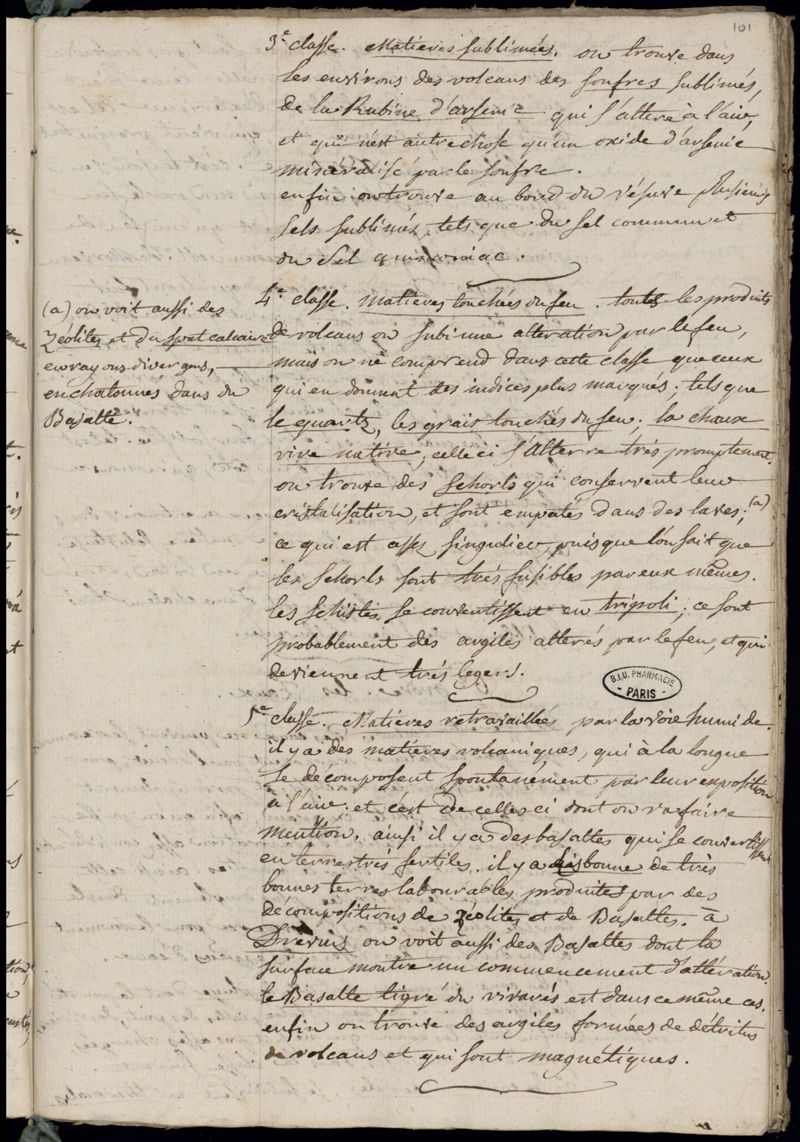 101
3.e classe. Matieres sublimées. on trouve dans
les environs des volcans des soufres sublimés,
de la Rubine d'arsenic qui s'altere à l'air,
et qui n'est autre chose qu'un oxide d'arsenic
minéralisé par le soufre.
enfin on trouve au bord du vésuve plusieurs
sels sublimés, tels que du sel commun et
du sel ammoniac.
4.e classe. Matieres touchées du feu. touts les produits
de volcans on subi une alteration par le feu,
mais on ne comprend dans cette classe que ceux
qui en donnent des indices plus marqués; tels que
le quartz, les grais touchés du feu; la chaux
vive native, celle ci s'alterre très promptement.
on trouve des schorls qui conservent leur
cristalisation, et sont empatés dans des laves; (a)
ce qui est assés singulier, puisque l'on sait que
les schorls sont très fusibles par eux mêmes.
les schistes se convertissent en tripoli; ce sont
probablement des argiles alterés par le feu, et qui
deviennent très legers.
(a) on voit aussi des
Zéolites et du spat calcaire
en rayons divergens,
enchatonnés dans du
Basalte.
B.I.U. PHARMACIE
PARIS
5.e classe. Matieres retravaillées par la voie humide.
il y a des matieres volcaniques, qui à la longue
se décomposent spontanément par leur exposition
à l'air; et c'est de celles ci dont on va faire
mention. ainsi il y a des basaltes qui se convertissent
en terres très fertiles. il y a à lisbonne de très
bonnes terres labourables produites par des
décompositions de zéolites et de Basaltes. à
on voit aussi des Basaltes dont la
surface montre un commencement d'altération.
le Basalte tigré du vivarés est dans ce même cas.
enfin on trouve des argiles formées de détritus
de volcans et qui sont magnétiques.